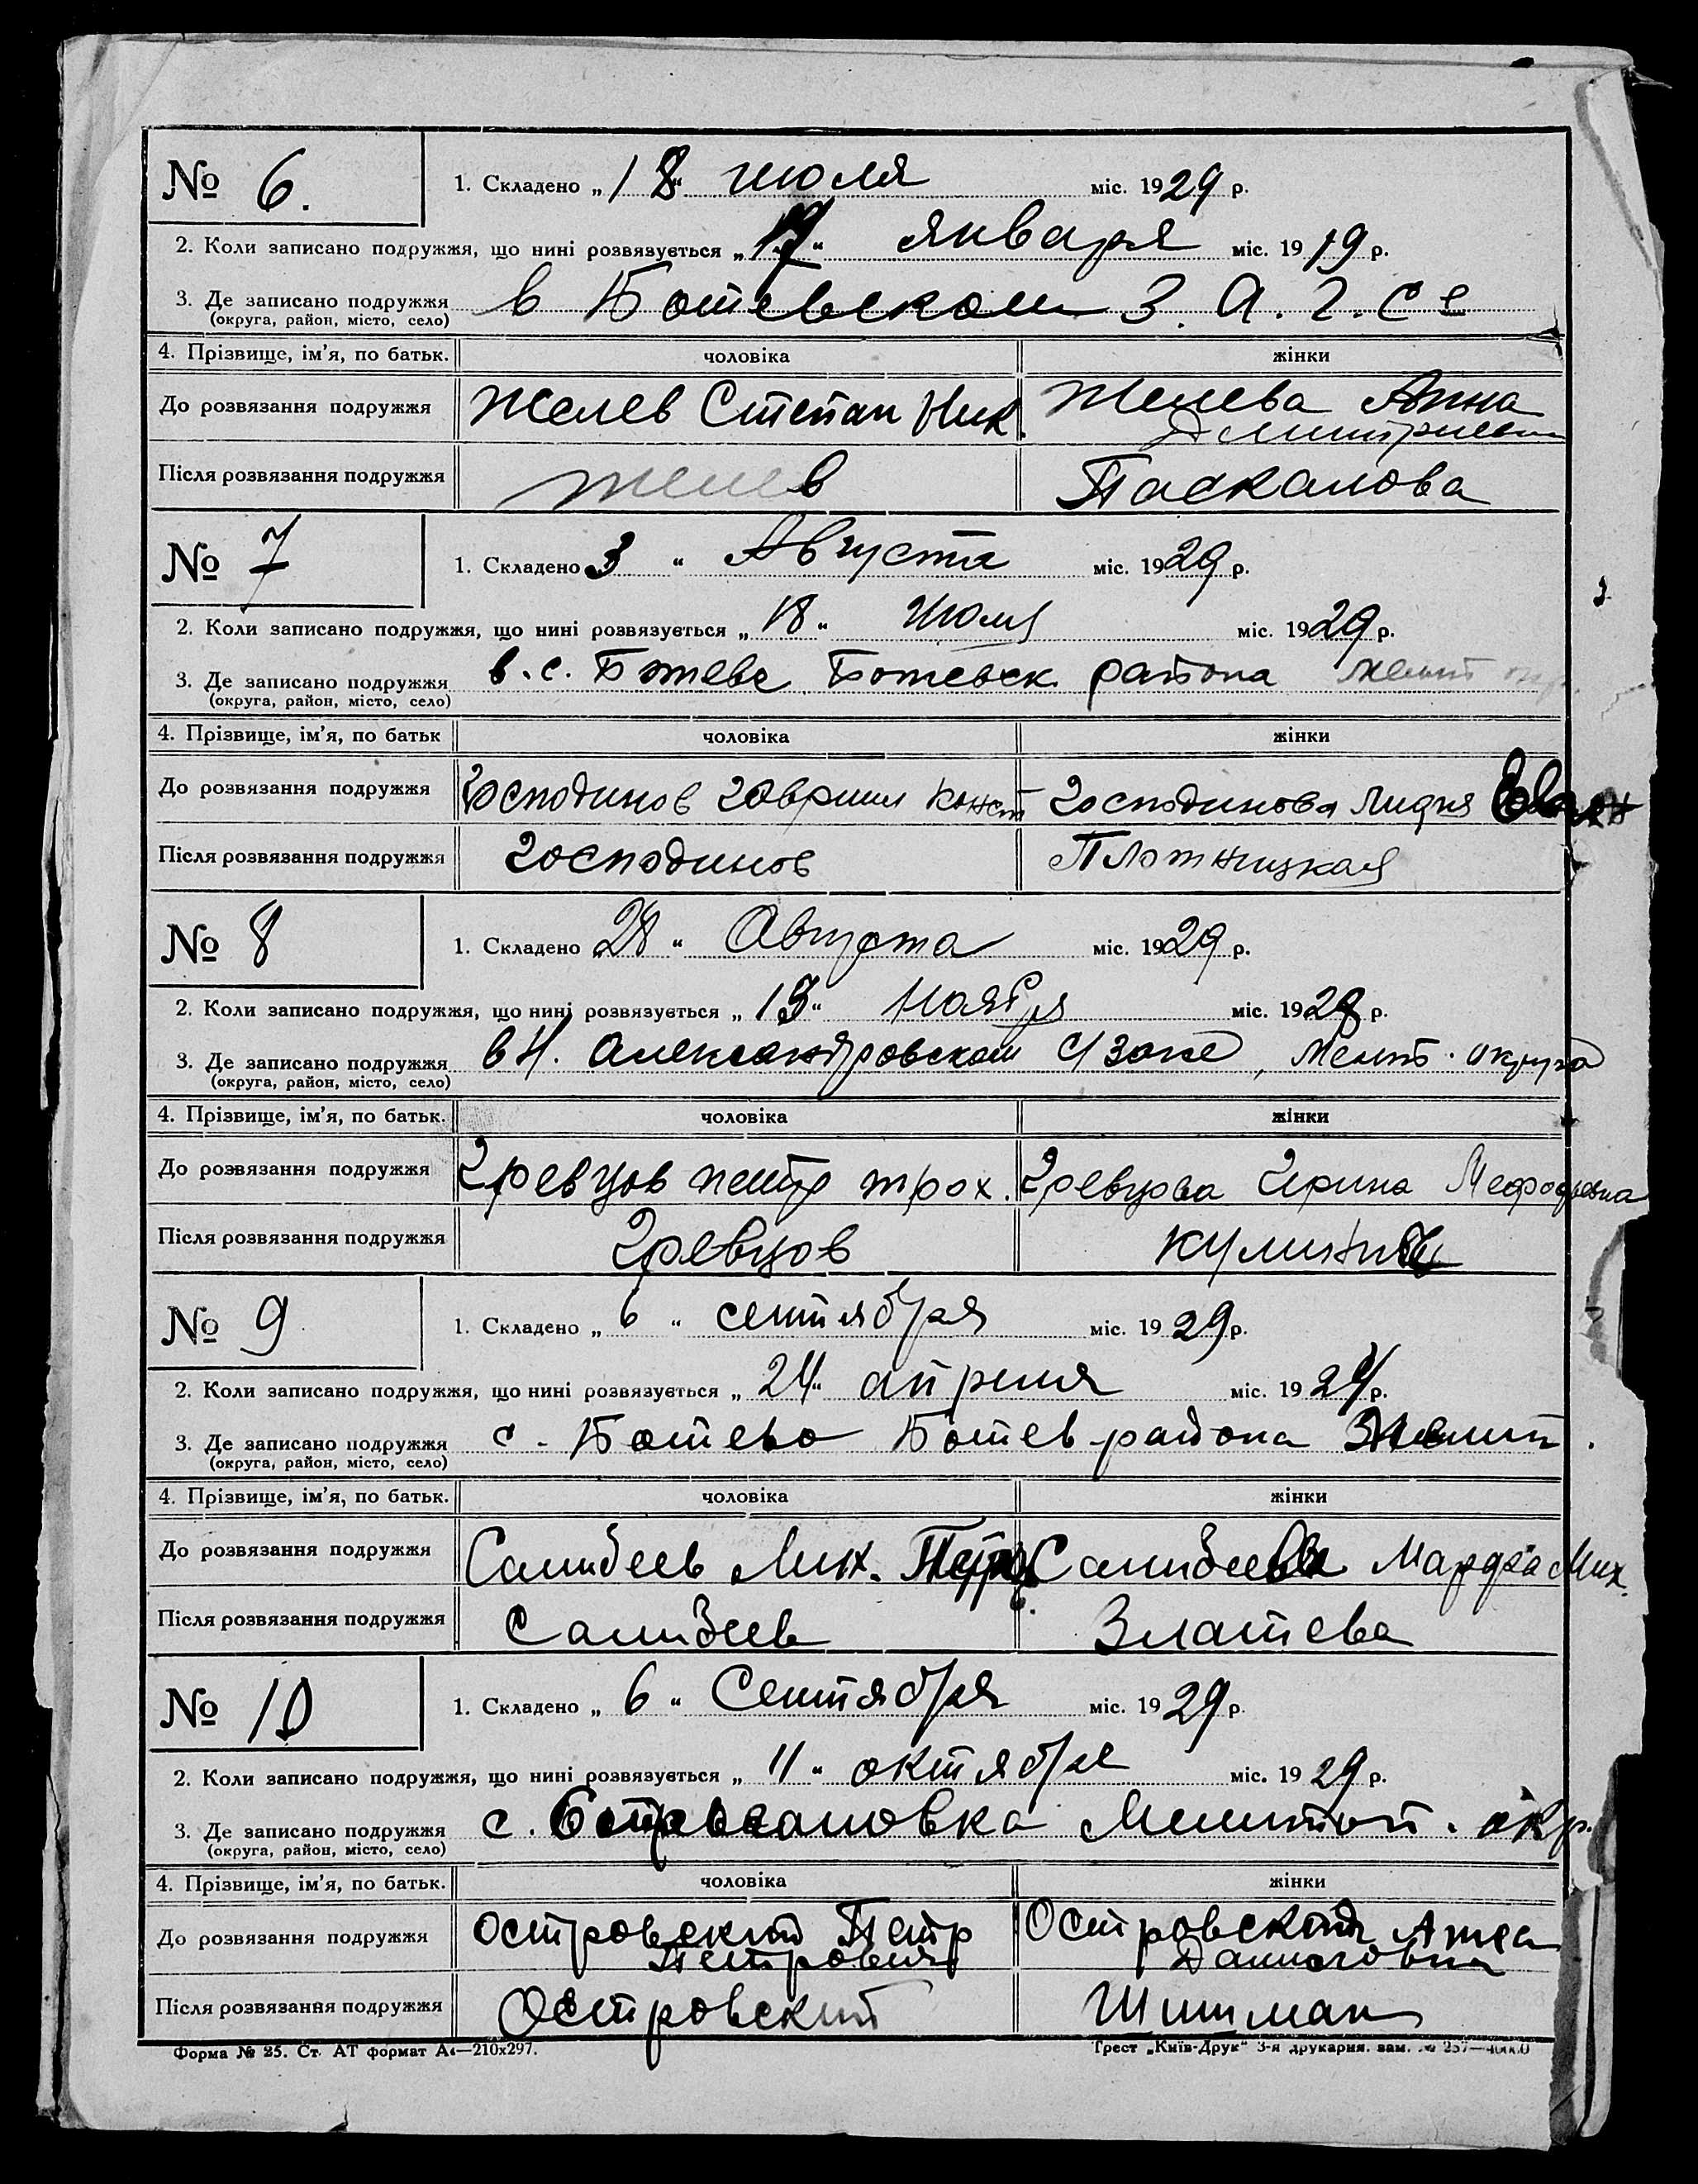 № 6.
1. Складено „18“ июля міс. 1929 р.
2. Коли записано подружжя, що нині розвязується „17“ января міс. 1919 р.
3. Де записано подружжя в Ботевском З. А. Г. С е
(округа, район, місто, село)
4. Прізвище, ім'я, по батьк. чоловіка жінки
До розвязання подружжя Желев Степан Ник. Желева Анна
Дмитриевн
Після розвязання подружжя Желев Паскалова
№ 7
1. Складено 3 “ Августа міс. 1929 р.
2. Коли записано подружжя, що нині розвязується „18“ Июля міс. 1929 р.
3. Де записано подружжя в. с. Ботеве Ботевск района
(округа, район, місто, село)
4. Прізвище, ім'я, по батьк чоловіка жінки
До розвязання подружжя Господинов Гавриил Конст Господинова Лидия
Після розвязання подружжя Господинов Плотницкая
№ 8
1. Складено 28 “ Августа міс. 1929 р.
2. Коли записано подружжя, що нині розвязується „13“ Ноября міс. 1928 р.
3. Де записано подружжя в Н. Александровском с/ загсе, Мелит. округа
(округа, район, місто, село)
4. Прізвище, ім'я, по батьк. чоловіка жінки
До розвязання подружжя Гревцов Петр Трох. Гревцова Ирина Мефодьевна
Після розвязання подружжя Гревцов
№ 9
1. Складено „6“ сентября міс. 1929 р.
2. Коли записано подружжя, що нині розвязується „24“ апреля міс. 1924 р.
3. Де записано подружжя с. Ботево Ботев района
(округа, район, місто, село)
4. Прізвище, ім'я, по батьк. чоловіка жінки
До розвязання подружжя Салибеев Мих. Петров. Салибеева Марфа Мих.
Після розвязання подружжя Салибеев Златева
№ 10
1. Складено „6“ Сентября міс. 1929 р.
2. Коли записано подружжя, що нині розвязується „11“ октября міс. 1929 р.
3. Де записано подружжя с. Мелитоп. окр.
(округа, район, місто, село)
4. Прізвище, ім'я, по батьк. чоловіка жінки
До розвязання подружжя Островский Петр Островская
Петрович Даниловна
Після розвязання подружжя Островский Шишман
Форма № 25. Ст. АТ формат А4—210х297. Трест „Київ-Друк“ 3-я друкарня. зам. № 257